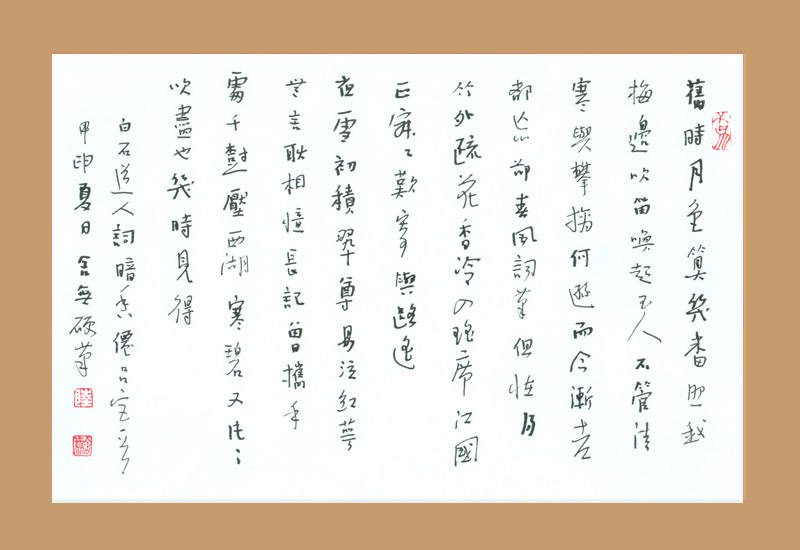 舊時月色算幾番照我
梅邊吹笛喚起玉人不管清
寒與攀摘何遜而今漸老
都忘卻春風詞筆但怪得
竹外疏花香冷入瑤席江國
正寂〻歎寄與路遙
夜雪初積翠尊易泣紅萼
無言耿相憶長記曾攜手
處千樹壓西湖寒碧又片〻
吹盡也幾時見得
白石道人詞暗香僊呂宮一首
甲申夏日舍無硬筆